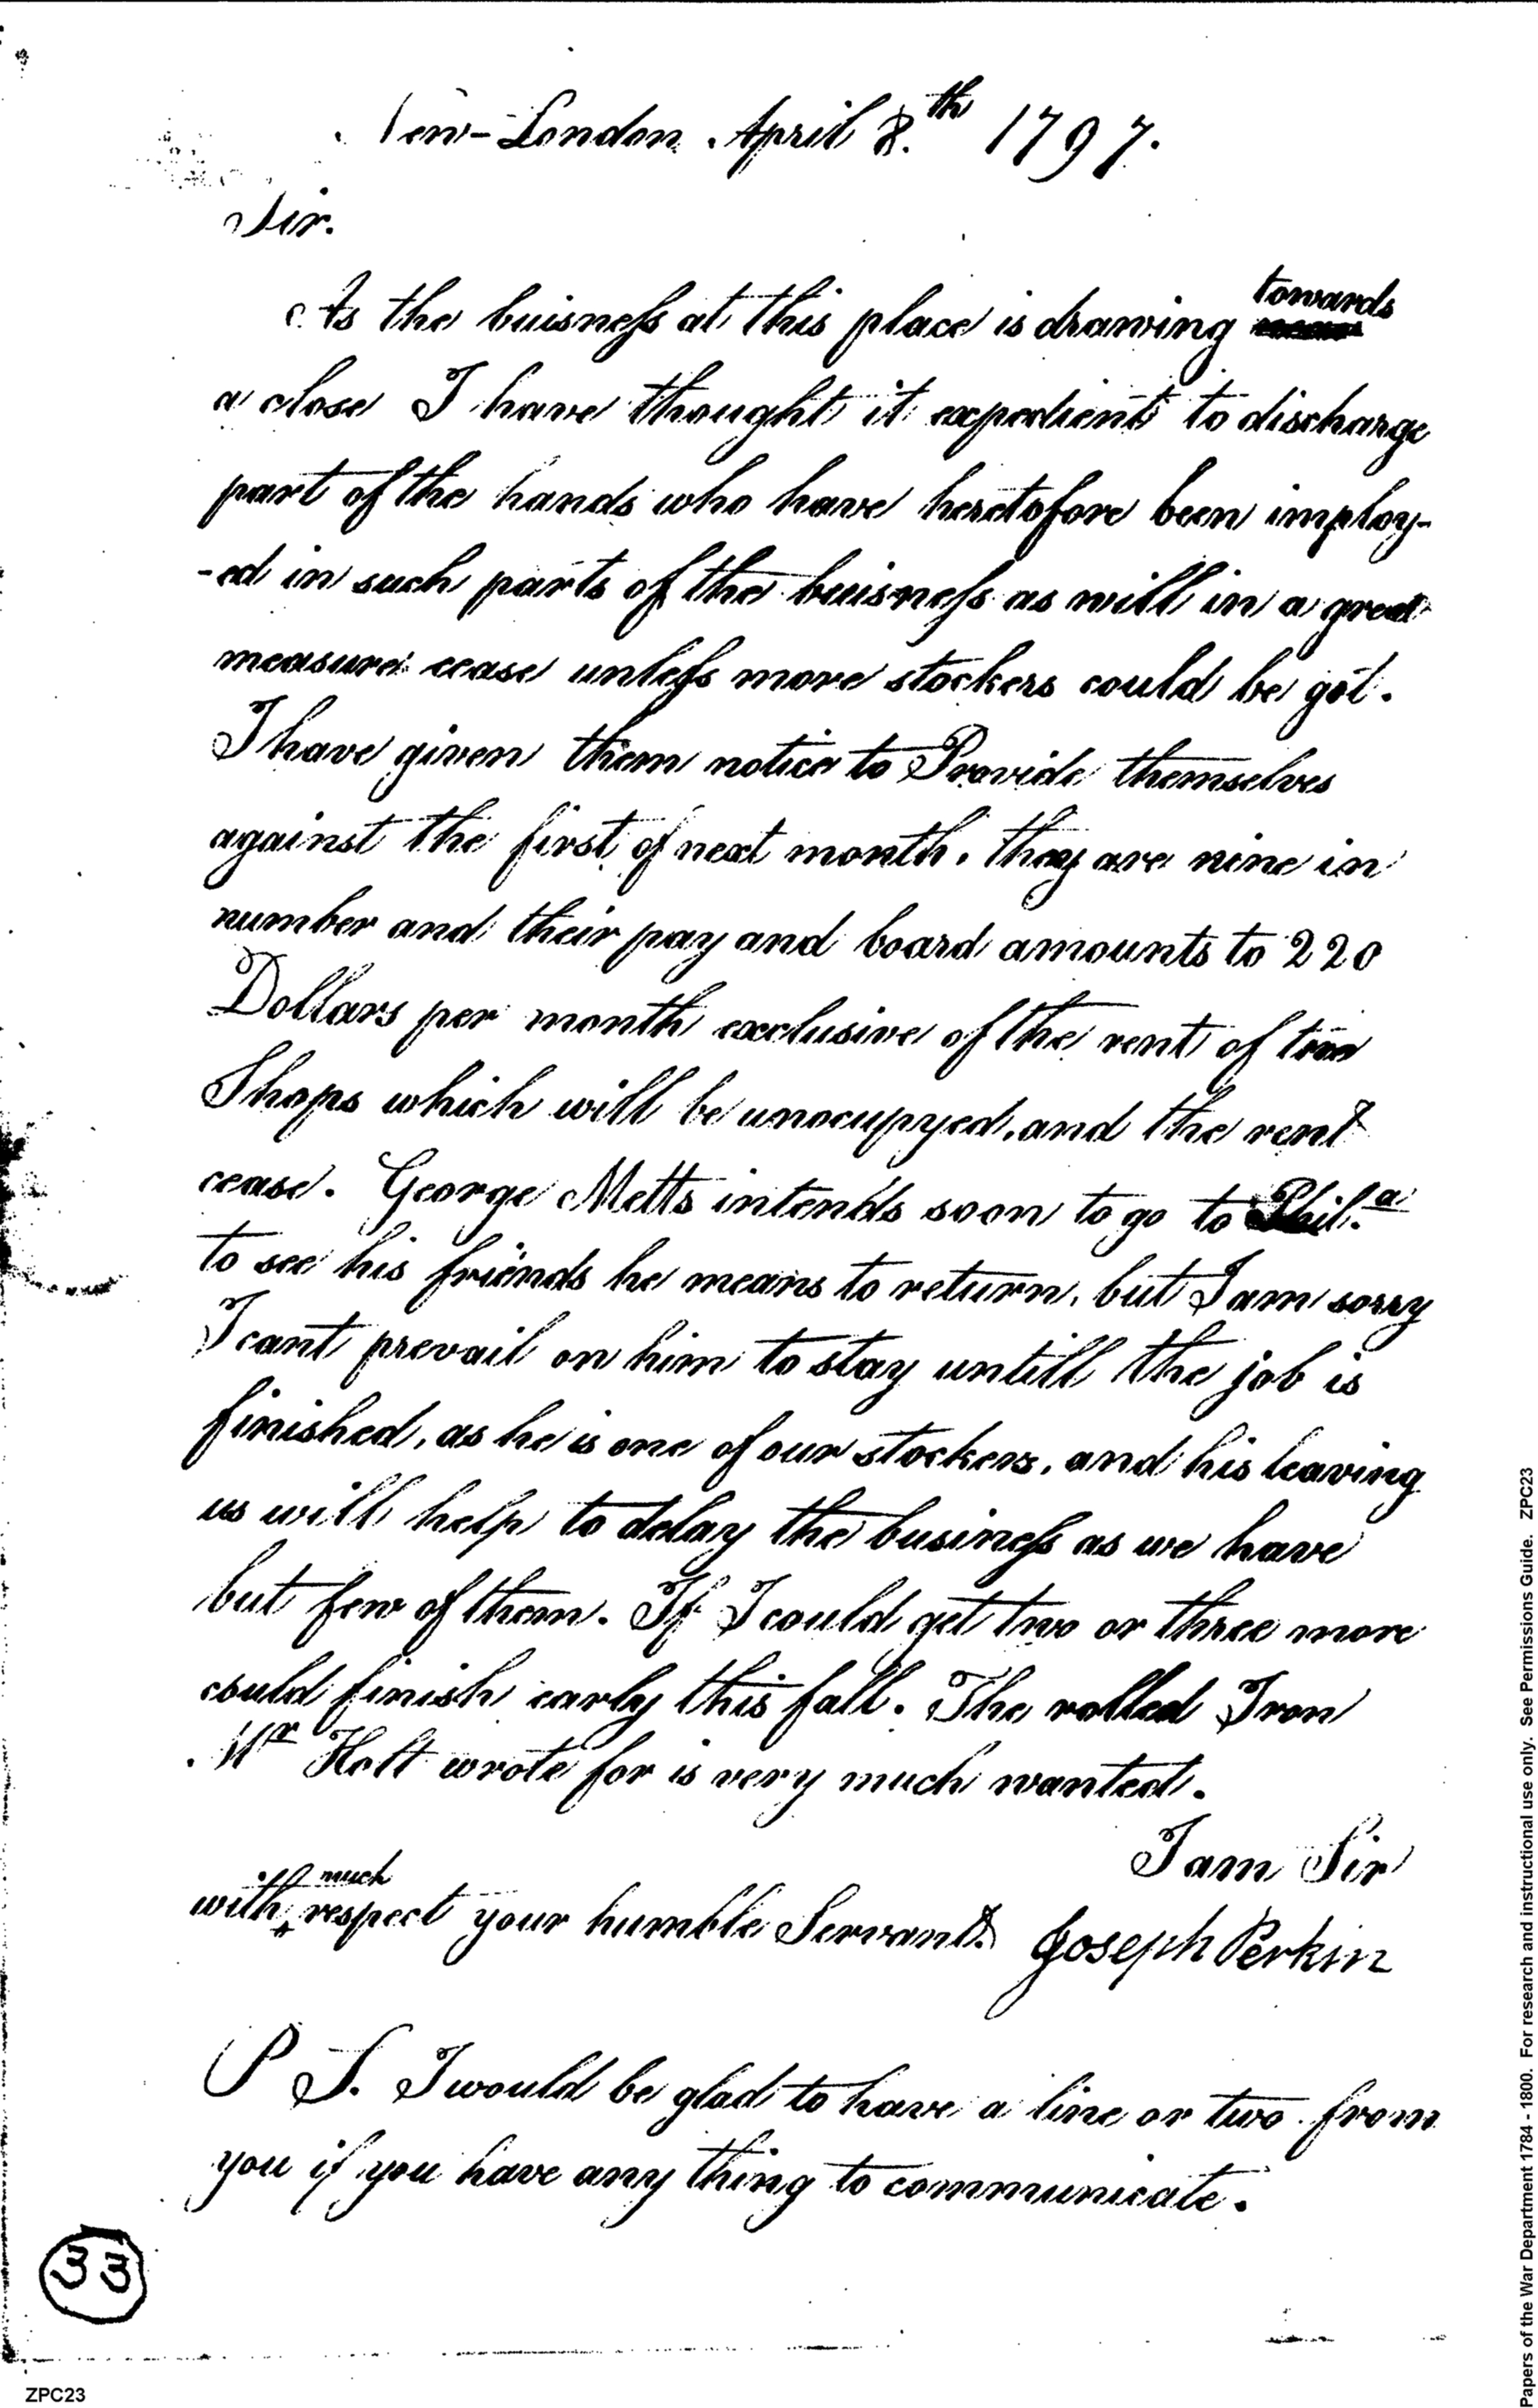 New-London April 8.th 1797.
Sir.
As the buisness at this place is drawing towards
a close I have thought it expedient to discharge
part of the hands who have heretofore been imploy-
-ed in such parts of the buisness as will in a great
measure cease unless more stockers could be got.
I have given them notice to Provide themselves
against the first of next month. they are nine in
number and their pay and board amounts to 220
Dollars per month exclusive of the rent of two
Shops which will be unocupyed, and the rent
cease. George Metts intends soon to go to Phil.a
to see his friends he means to return, but I am sorry
I cant prevail on him to stay untill the job is
finished, as he is one of our stockers, and his leaving
us will help to delay the business as we have
but few of them. If I could get two or three more
could finish early this fall. The rolled Iron
Mr Holt wrote for is very much wanted.
I am Sir
with much respect your humble Servant. Joseph Perkin
P S. I would be glad to have a line or two from
you if you have any thing to communicate.
33
ZPC23
Papers of the War Department 1784 - 1800. For research and instructional use only. See Permissions Guide. ZPC23